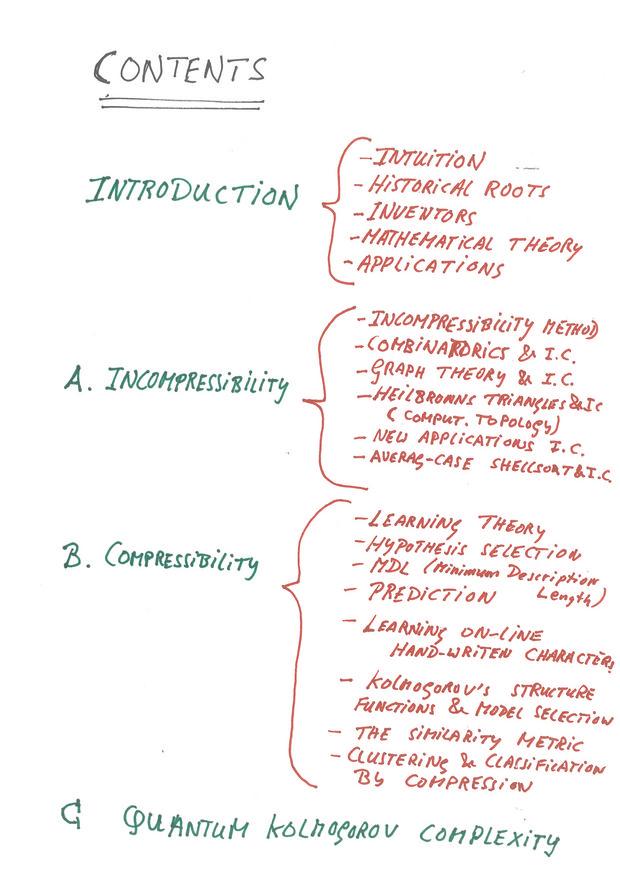 CONTENTS
INTRODUCTION
- INTUITION
- HISTORICAL ROOTS
- INVENTORS
- MATHEMATICAL THEORY
- APPLICATIONS
A. INCOMPRESSIBILITY
- INCOMPRESSIBILITY METHOD
- COMBINATORICS & I.C.
- GRAPH THEORY & I.C.
- HEILBRONNS TRIANGLES & IC
( COMPUT. TOPOLOGY)
- NEW APPLICATIONS I.C.
- AVERAG-CASE SHELLSORT & I.C.
B. COMPRESSIBILITY
- LEARNING THEORY
- HYPOTHESIS SELECTION
- MDL (Minimum Description
Length)
- PREDICTION
- LEARNING ON-LINE
HAND-WRITEN CHARACTERS
- KOLMOGOROV'S STRUCTURE
FUNCTIONS & MODEL SELECTION
- THE SIMILARITY METRIC
- CLUSTERING & CLASSIFICATION
BY COMPRESSION
C QUANTUM KOLMOGOROV COMPLEXITY